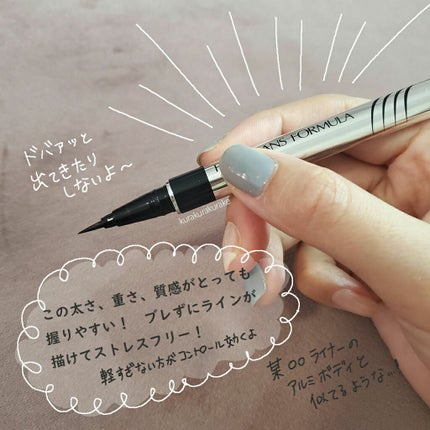 ドバァッと
出てきたり
しないよ〜
ANS FORMULA
kurakurakurake
この太さ、重さ、質感がとっても
握りやすい! ブレずにラインが
描けてストレスフリー!
軽すぎない方がコントロール効くよ
某〇〇ライナーの
アルミボディと
似てるような…!